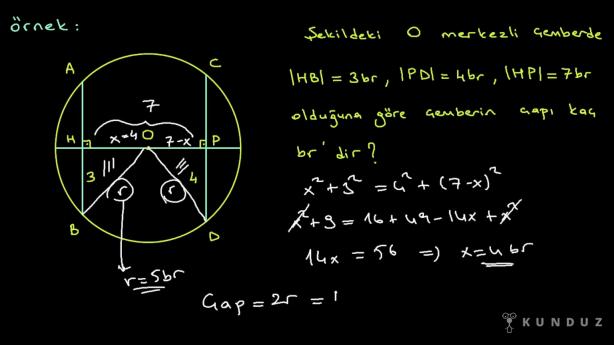 örnek :
Şekildeki O merkezli çemberde
|HB| = 3br , |PD| = 4br , |HP| = 7br
olduğuna göre çemberin çapı kaç
br' dir ?
A
C
7
H
x=4
O
7-x
P
3
r
r
4
B
D
r=5br
x² + 3² = 4² + (7-x)²
x² + 9 = 16 + 49 - 14x + x²
14x = 56 => x = 4 br
Çap = 2r = 1
KUNDUZ